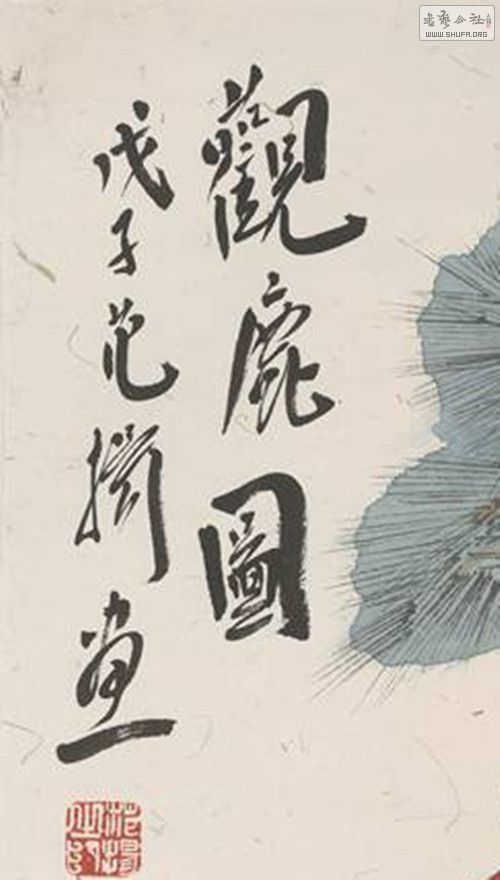 觀鹿圖
戊子范揚畫
書藝公社
WWW.SHUFA.ORG